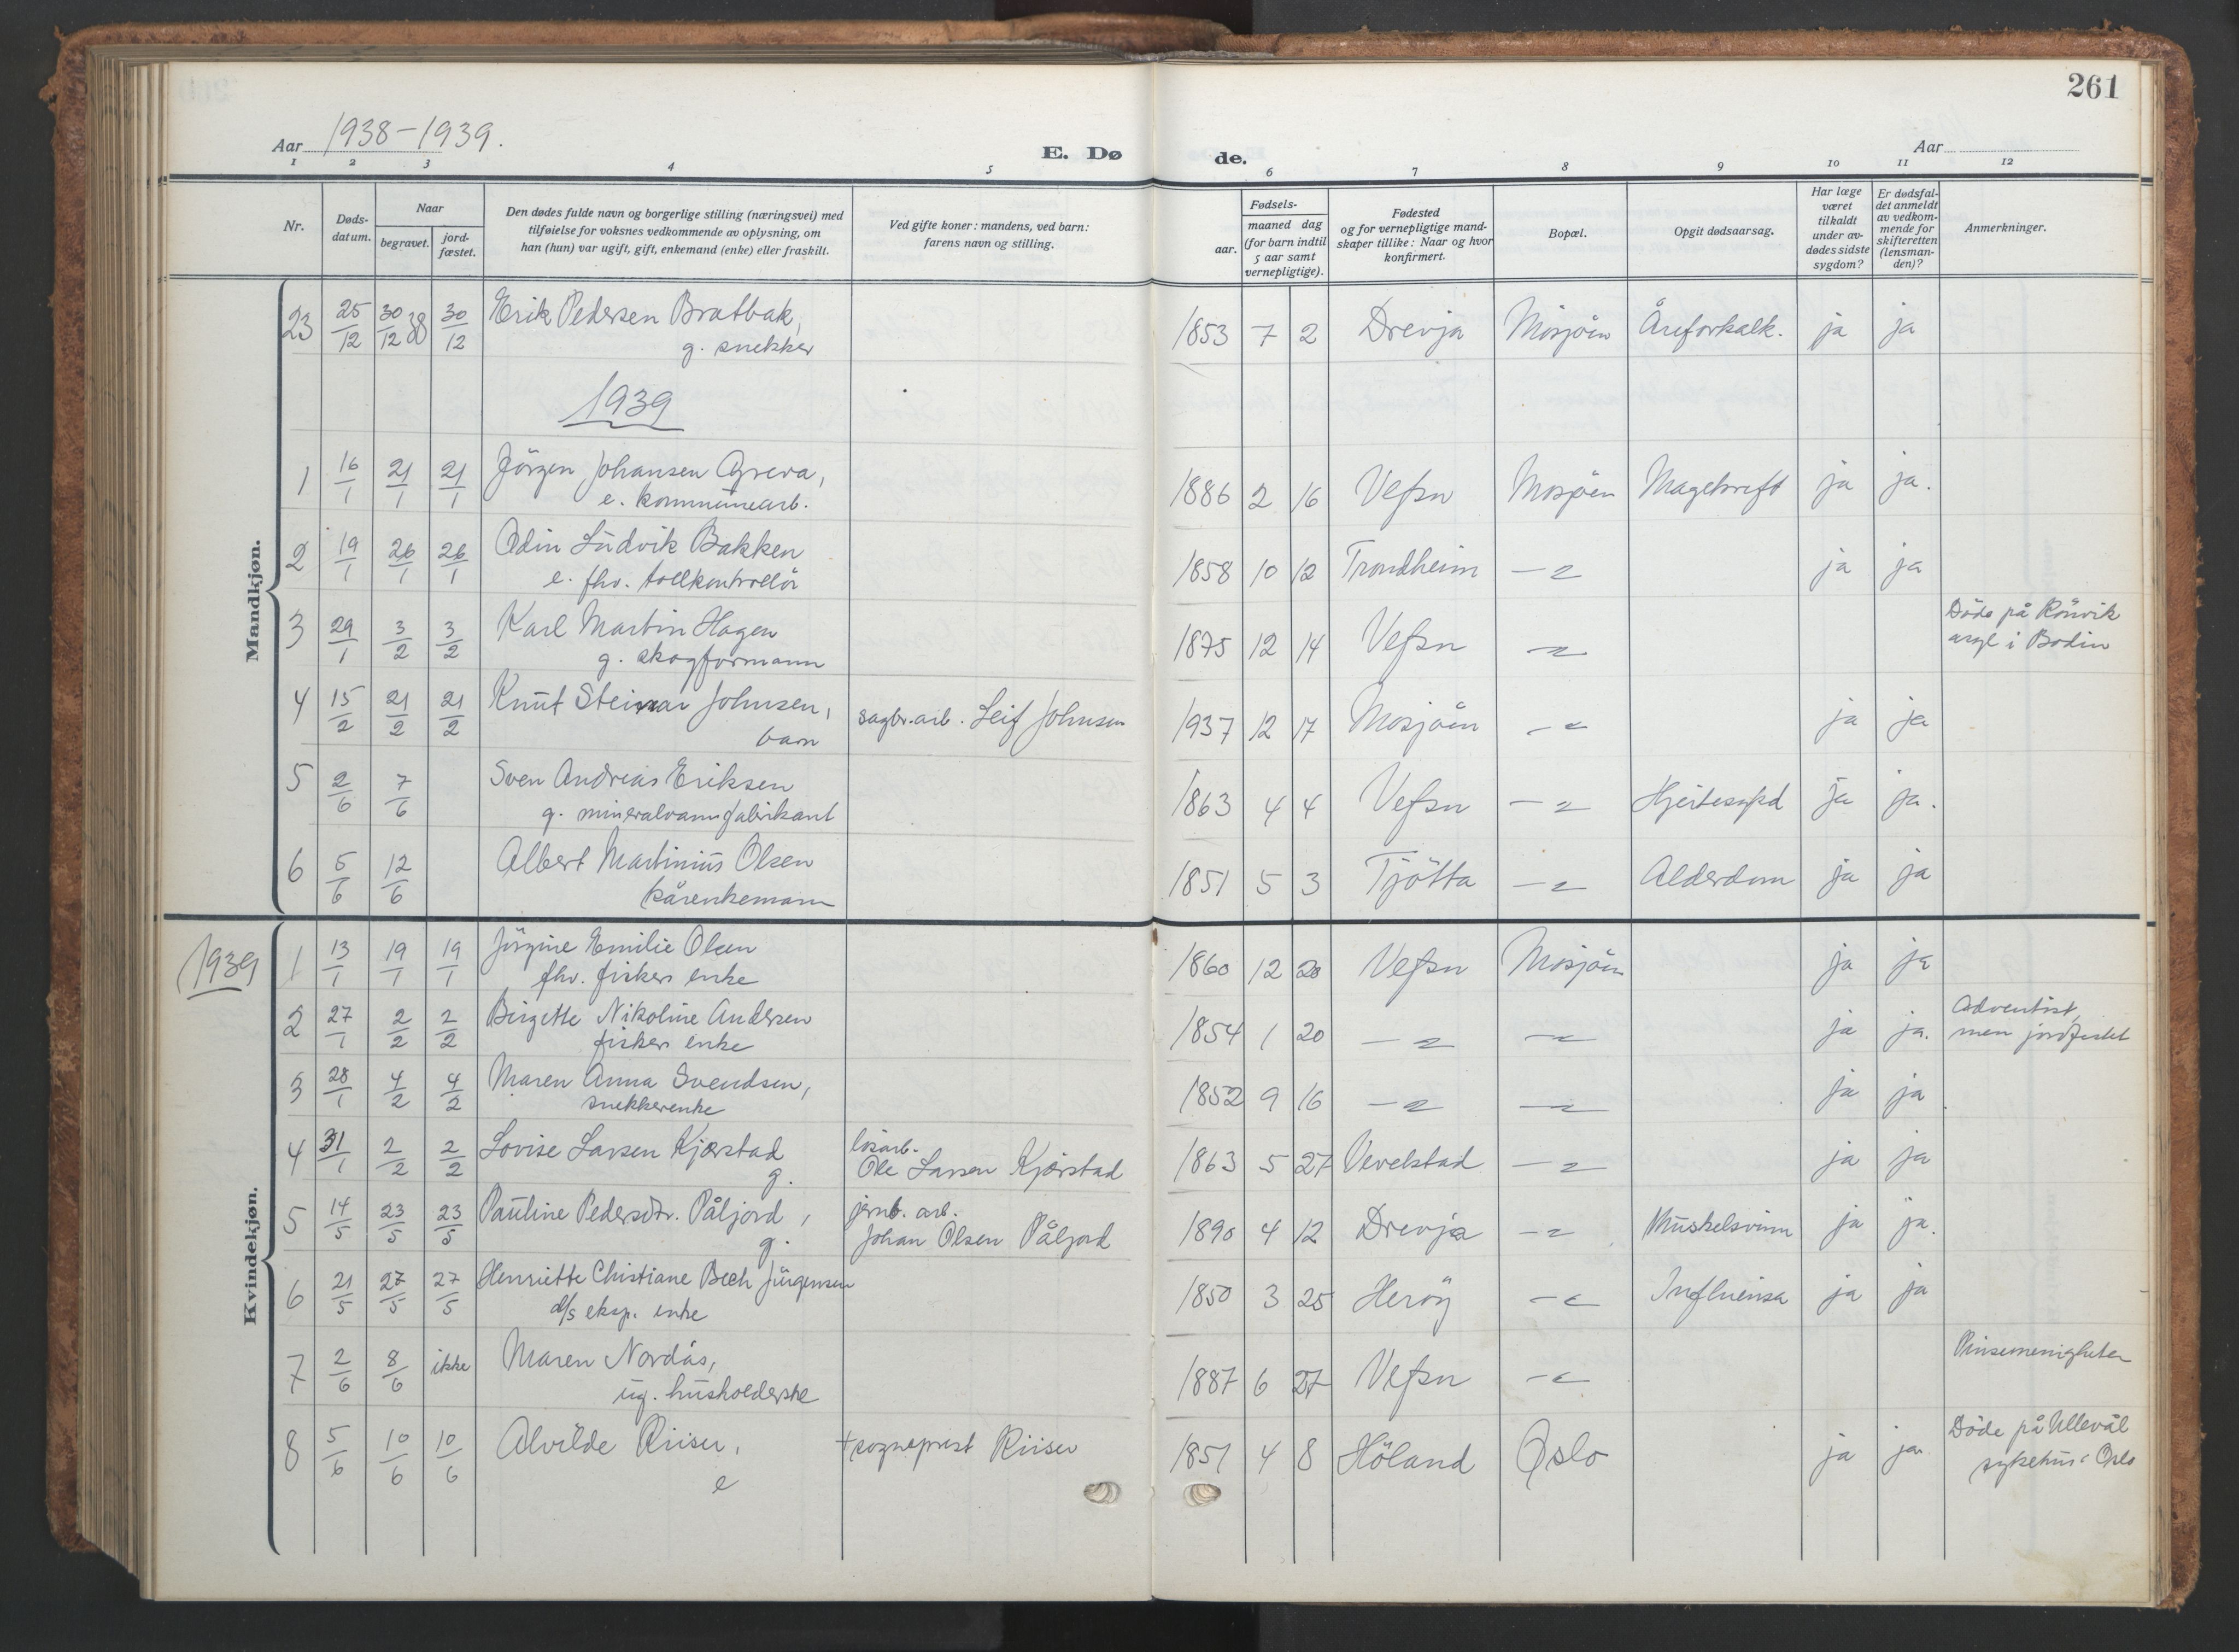 261
Aar 1938-1939.
E. Dø
de.
Aar
1 2 3 4 5 6 7 8 9 10 11 12
Nr.
Døds-
datum.
Naar
begravet.
jord-
fæstet.
Den dødes fulde navn og borgerlige stilling (næringsvei) med
tilføielse for voksnes vedkommende av oplysning, om
han (hun) var ugift, gift, enkemand (enke) eller fraskilt.
Ved gifte koner: mandens, ved barn:
farens navn og stilling.
Fødsels-
aar.
maaned dag
(for barn indtil
5 aar samt
vernepligtige).
Fødested
og for vernepligtige mand-
skaper tillike: Naar og hvor
konfirmert.
Bopæl.
Opgit dødsaarsag.
Har læge
været
tilkaldt
under av-
dødes sidste
sygdom?
Er dødsfal-
det anmeldt
av vedkom-
mende for
skifteretten
(lensman-
den)?
Anmerkninger.
Mandkjøn.
23 25/12 30/12 38 30/12 Erik Pedersen Bratbak,
g. snekker
1853 7 2 Drevja Mosjöen Åreforkalk. ja ja
1939
1 16/1 21/1 21/1 Jörgen Johansen Greva,
e. kommunearb.
1886 2 16 Vefsn Mosjöen Magekreft ja ja.
2 19/1 26/1 26/1 Odin Ludvik Bakken
e. fhv. tollkontrollör
1858 10 12 Trondheim -"- ja ja
3 29/1 3/2 3/2 Karl Martin Hagen
g. skogformann
1875 12 14 Vefsn -"- Döde på Rönvik
asyl i Bodin
4 15/2 21/2 21/2 Knut Steinar Johnsen,
barn
sagbr.arb. Leif Johnsen
1937 12 17 Mosjöen -"- ja ja
5 2/6 7/6 Sven Andreas Eriksen
g. mineralvannfabrikant
1863 4 4 Vefsn -"- Hjertesykd ja ja.
6 5/6 12/6 Albert Martinius Olsen
kårenkemann
1851 5 3 Tjötta -"- Alderdom ja ja
1939
Kvindekjøn.
1 13/1 19/1 19/1 Jörgine Emilie Olsen
fhv. fiskers enke
1860 12 20 Vefsn Mosjöen ja ja
2 27/1 2/2 2/2 Birgette Nikoline Andersen
fiskers enke
1854 1 20 -"- -"- ja ja. Adventist,
men jordfestet
3 28/1 4/2 4/2 Maren Anna Svendsen,
snekkerenke
1852 9 16 -"- -"- ja ja
4 31/1 2/2 2/2 Lovise Larsen Kjærstad
g.
lösarb.
Ole Larsen Kjærstad
1863 5 27 Vevelstad -"- ja ja
5 14/5 23/5 23/5 Pauline Pedersdtr. Påljord,
g.
jernb. arb.
Johan Olsen Påljord
1890 4 12 Drevja -"- Muskelsvinn ja ja.
6 21/5 27/5 27/5 Henriette Chistiane Bech Jürgensen
d/s eksp. enke
1850 3 25 Heröy -"- Influensa ja ja
7 2/6 8/6 ikke Maren Nordås,
ug. husholderske
1887 6 27 Vefsn -"- Pinsemenigheten
8 5/6 10/6 10/6 Alvilde Riiser,
e
+ sogneprest Riiser
1851 4 8 Höland Oslo ja ja Döde på Ullevål
sykehus i Oslo